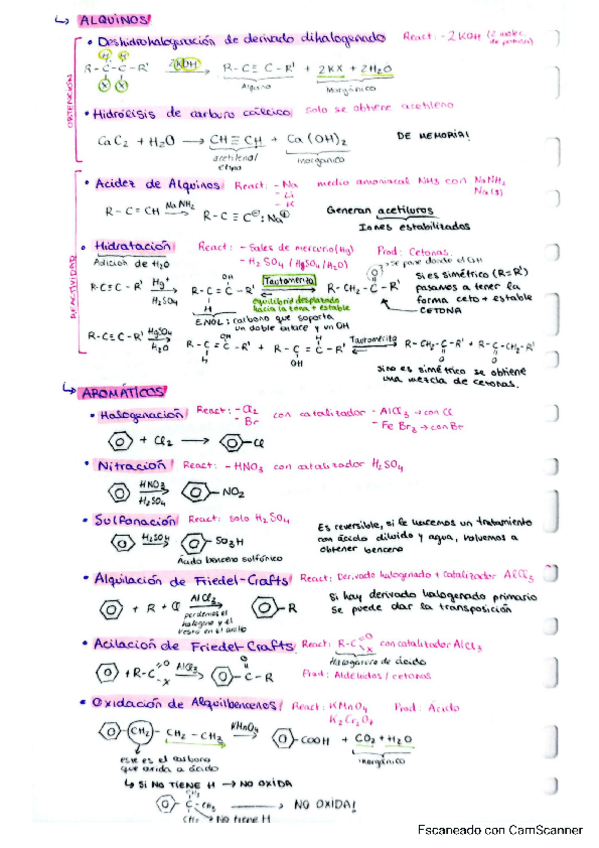 ↳ ALQUINOS
• Deshidrohalogenación de derivado dihalogenado React: - 2 KOH (2 molec. de potasa)
OBTENCIÓN
H H
R-C-C-R' 2KOH → R-C≡C-R' + 2KX + 2H2O
X X
Alquino Inorgánico
• Hidrólisis de carburo cálcico Solo se obtiene acetileno
CaC2 + H2O → CH≡CH + Ca(OH)2 DE MEMORIA!
acetileno/ etino inorgánico
REACTIVIDAD
• Acidez de Alquinos React: - Na medio amoniacal NH3 con NaNH2
- Li Na(s)
- K
R-C≡CH NaNH2 → R-C≡C⊖:Na⊕ Generan acetiluros
Iones estabilizados
• Hidratación React: - Sales de mercurio (Hg) Prod: Cetonas.
Adición de H2O - H2SO4 (HgSO4/H2O)
Se pone donde el OH
R-C≡C-R' Hg+ H2SO4 → R-C=C-R' Tautomeriza R-CH2-C-R'
OH H O
Si es simétrico (R=R')
pasamos a tener la
forma ceto + estable
CETONA
equilibrio desplazado
hacia la zona + estable
ENOL: carbono que soporta
un doble enlace y un OH
R-C≡C-R' HgSO4 H2O → R-C=C-R' + R-C=C-R' Tautomeriza R-CH2-C-R' + R-C-CH2-R'
Si no es simétrico se obtiene
una mezcla de cetonas.
↳ AROMÁTICOS
• Halogenación React: - Cl2 con catalizador - AlCl3 → con Cl
- Br - FeBr3 → con Br
+ Cl2 → -Cl
• Nitración React: - HNO3 con catalizador H2SO4
HNO3 H2SO4 → -NO2
• Sulfonación React: solo H2SO4
H2SO4 → -SO3H
Ácido benceno sulfónico
Es reversible, si le hacemos un tratamiento
con ácido diluido y agua, volvemos a
obtener benceno
• Alquilación de Friedel-Crafts React: Derivado halogenado + catalizador AlCl3
+ R + Cl AlCl3 → -R
perdemos el
halógeno y el
resto en el anillo
Si hay derivado halogenado primario
se puede dar la transposición
• Acilación de Friedel-Crafts React: R-C=O X con catalizador AlCl3
Halogenuro de ácido
+ R-C=O X AlCl3 → -C-R
O
Prod: Aldehidos / cetonas
• Oxidación de Alquilbencenos React: KMnO4 Prod: Ácido
K2Cr2O7
-CH2-CH2-CH3 KMnO4 → -COOH + CO2 + H2O
inorgánico
este es el carbono
que oxida a ácido
↳ Si NO TIENE H → NO OXIDA
CH3
-C-CH3 → NO OXIDA!
CH3 → No tiene H
Escaneado con CamScanner